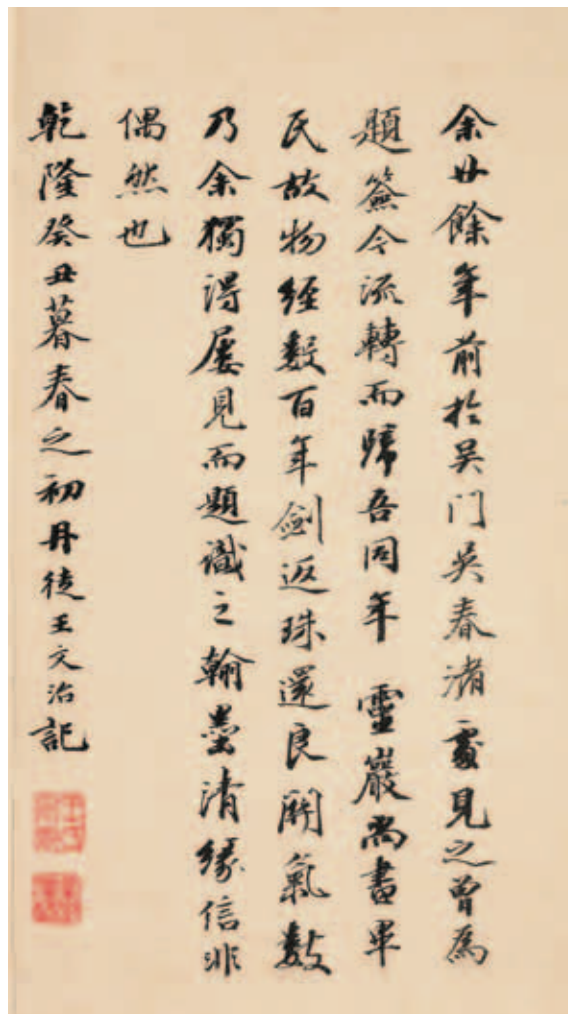 余廿餘年前於吳門吳春渚處見之曾為
題簽今流轉而歸吾同年 靈巖尚書畢
氏故物經數百年劍返珠還良關氣數
乃余獨得屢見而題識之翰墨清緣信非
偶然也
乾隆癸丑暮春之初丹徒王文治記